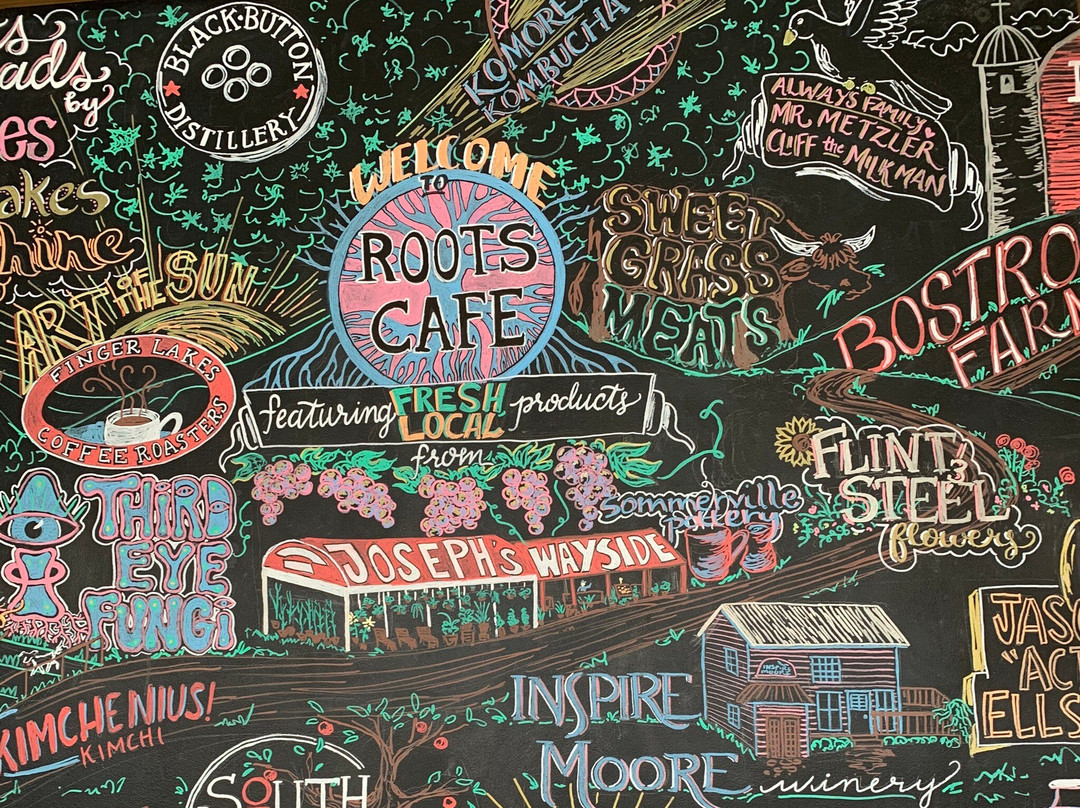 ads
by
es
akes
hine
ART OF THE SUN
BLACK·BUTTON
DISTILLERY
KOMORE
KOMBUCHA
ALWAYS FAMILY
MR. METZLER
CLIFF the MILK MAN
WELCOME
TO
ROOTS
CAFE
featuring FRESH LOCAL products
from
SWEET
GRASS
MEATS
BOSTRO
FARM
FINGER LAKES
COFFEE ROASTERS
FLINT &
STEEL
flowers
Sommerville
pottery
THIRD
EYE
FUNGI
JOSEPH'S WAYSIDE
KIMCHENIUS!
KIMCHI
INSPIRE
MOORE
winery
JAS
"ACT
ELLS
SOUTH